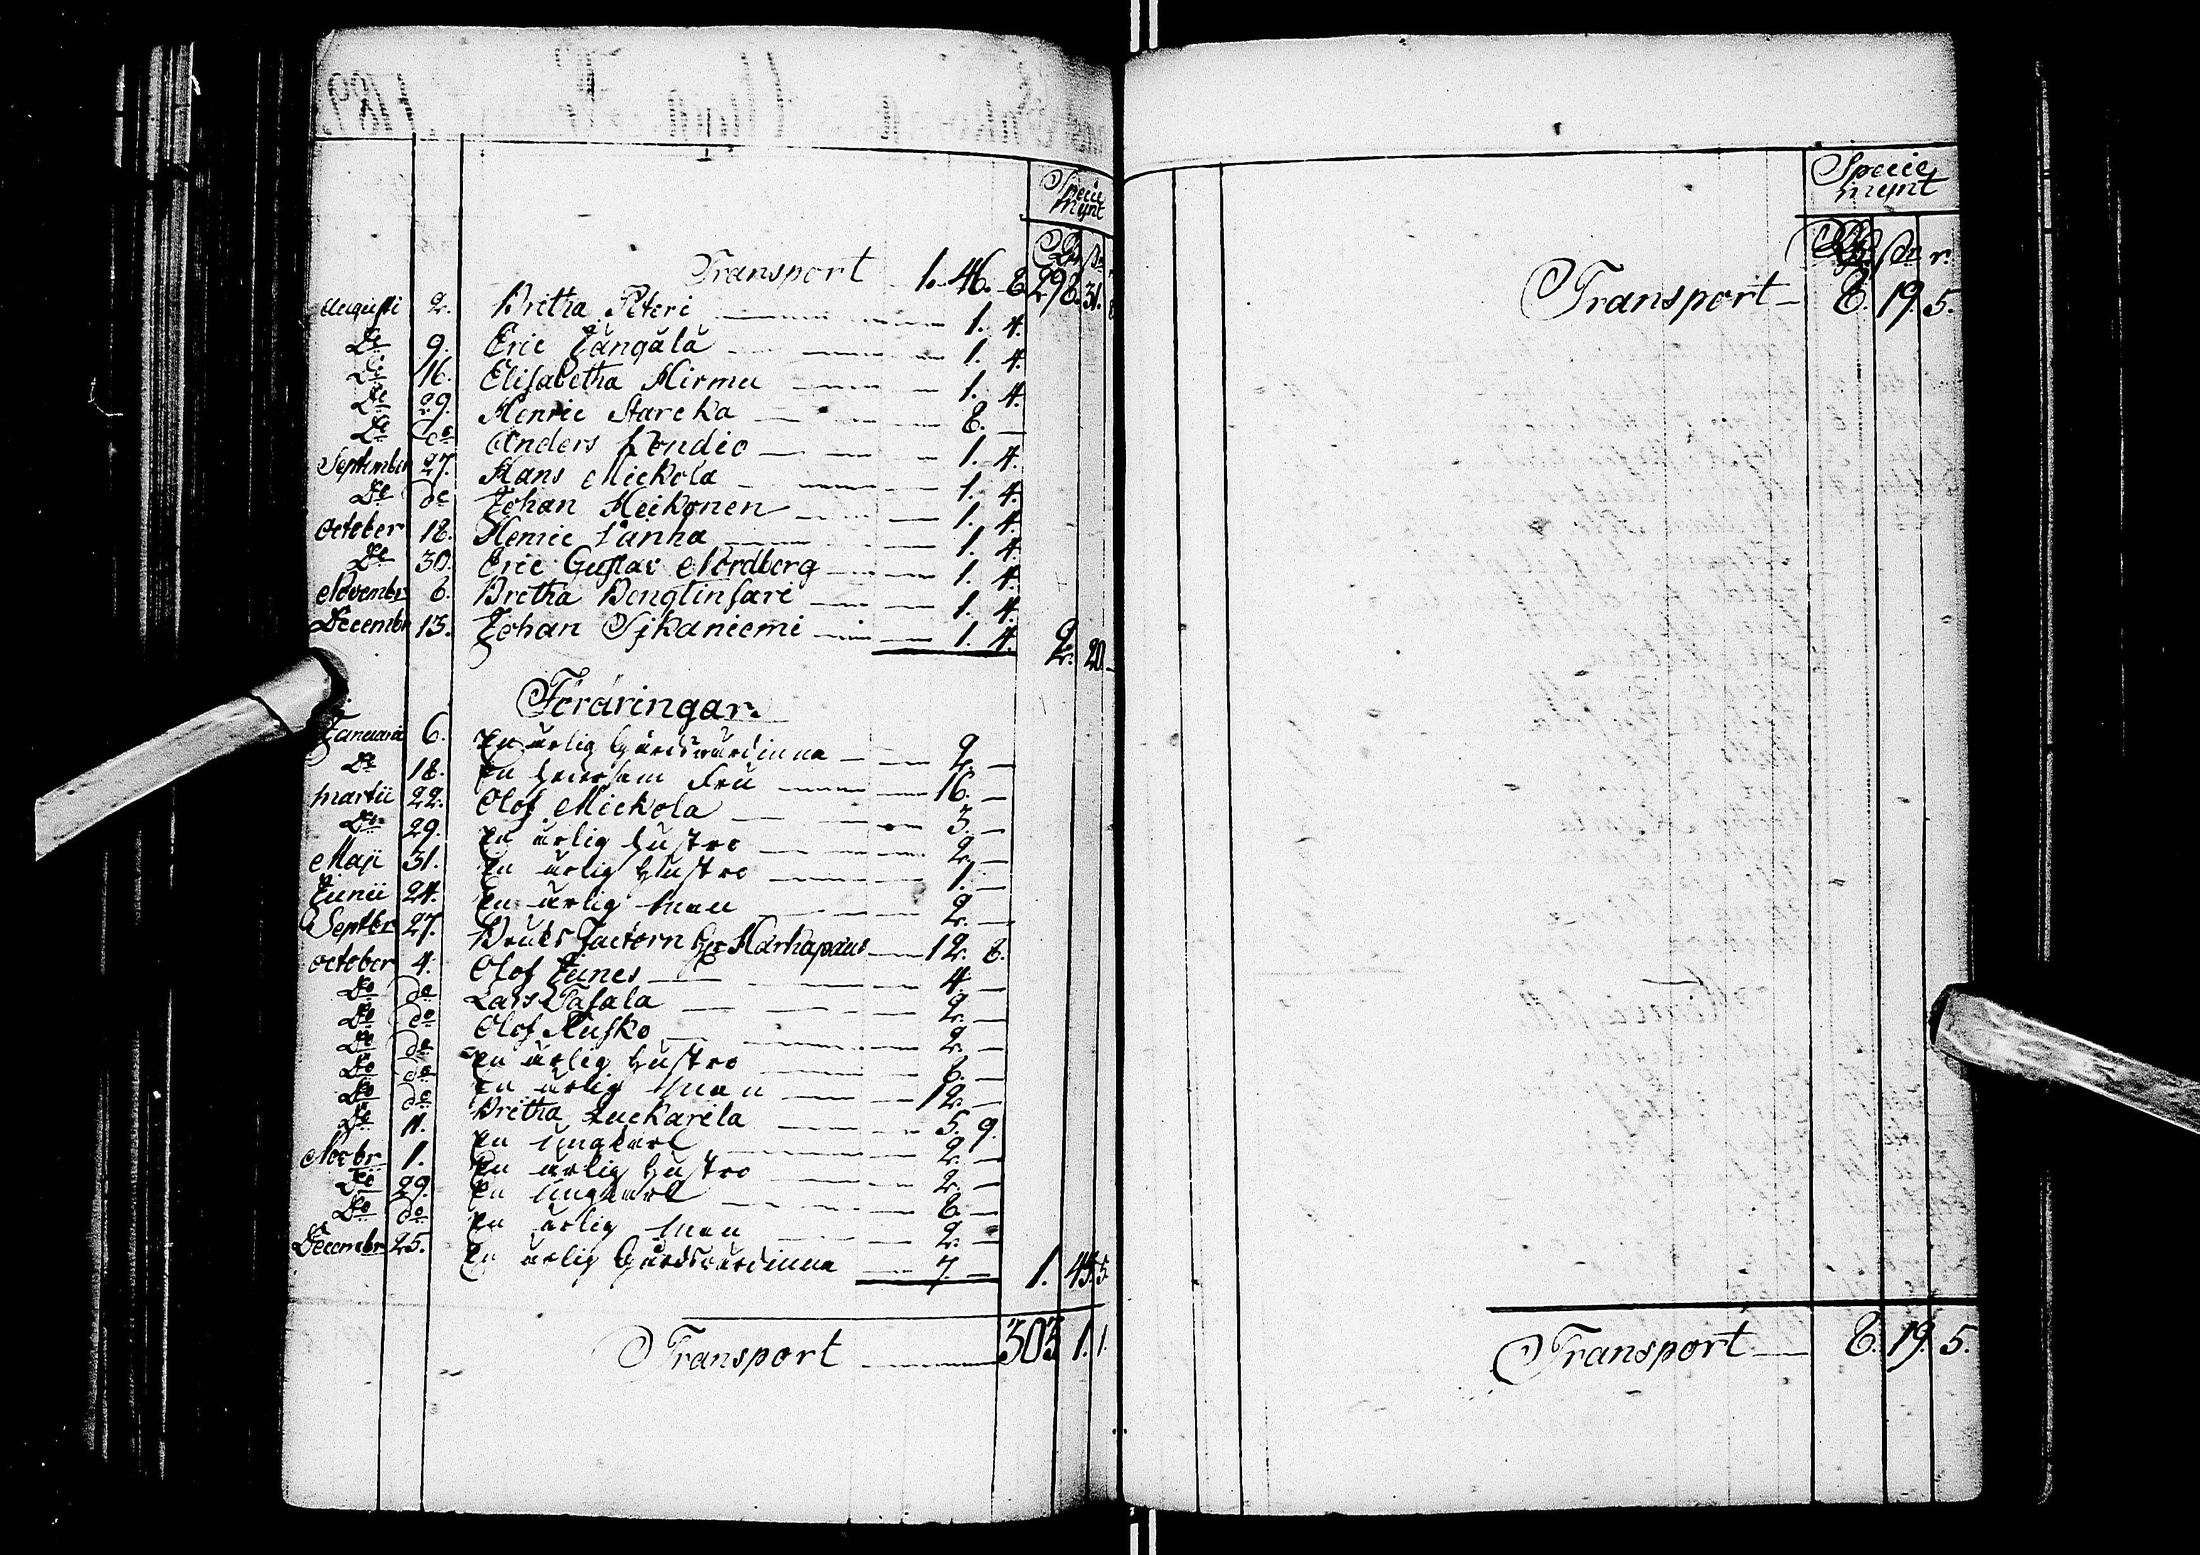 Specie
mynt
Rd. sk. r.
Transport 1. 46. 8. 298. 31. 8
Augusti 2. Britha Peteri 1. 4.
Do 9. Eric Tangala 1. 4.
Do 16. Elisabetha Hirmu 1. 4.
Do 29. Henric Starcka 8. —
Do do Anders Londic 1. 4.
September 27. Hans Mickola 1. 4.
Do do Johan Heikonen 1. 4.
October 18. Henric Lanha 1. 4.
Do 30. Eric Gustav Nordberg 1. 4.
Novembr 8. Britha Bengtinsari 1. 4.
Decembr 13. Johan Sjkaniemi 1. 4. 2. 20. —
Föräringar.
Januarii 6. En ärlig Gårdswärdinna 2. —
Do 18. En hedersam Fru 16. —
Martii 22. Olof Mickola 3. —
Do 29. En ärlig hustro 2. —
Maji 31. En ärlig Hustro 1. —
Junii 24. En ärlig man 2. —
Septbr 27. Bruks Factorn Hr Harhapäus 12. 8.
October 4. Olof Junes 4. —
Do do Lars Tafala 2. —
Do do Olof Rusko 2. —
Do do En ärlig hustro 6. —
Do do En ärlig man 12. —
Do do Britha Luckarila 5. 9.
Do 11. En ungkarl 2. —
Novbr 1. En ärlig hustro 2. —
Do 29. En ungkarl 8. —
Do do En ärlig man 2. —
Decembr 25. En ärlig Gårdswärdinna 7. — 1. 45. 5.
Transport 303 1. 1.
Specie
mynt
Rd. sk r.
Transport 8. 19. 5.
Transport 8. 19. 5.